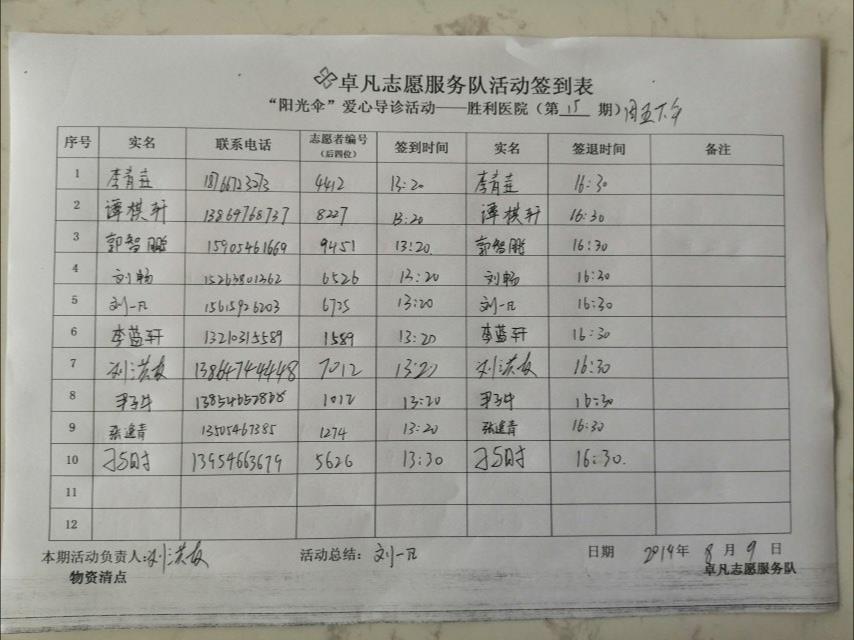 卓凡志愿服务队活动签到表
“阳光伞”爱心导诊活动——胜利医院（第 15 期）周五下午
序号 实名 联系电话 志愿者编号（后四位） 签到时间 实名 签退时间 备注
1 李育 4412 13:20 李育 16:30
2 谭棋轩 13869768737 8227 13:20 谭棋轩 16:30
3 郭智鹏 15905461669 9451 13:20 郭智鹏 16:30
4 刘畅 15263801362 6526 13:20 刘畅 16:30
5 刘一凡 15615926203 6725 13:20 刘一凡 16:30
6 李蓝轩 13210315589 1589 13:20 李蓝轩 16:30
7 刘洪友 13864744448 7012 13:20 刘洪友 16:30
8 1012 13:20 16:30
9 13505467385 1274 13:20 16:30
10 13954663679 5626 13:30 16:30.
11
12
本期活动负责人:刘洪友 活动总结: 刘一凡 日期 2019年 8 月 9 日
物资清点 卓凡志愿服务队